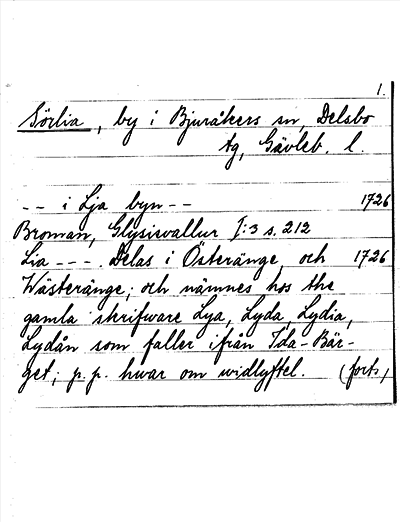 1.
Sörlia, by i Bjuråkers sn, Delsbo
tg, Gävleb. l.
-- i Lja byn -- 1726
Broman, Glysisvallur I:3 s. 212
Lia --- Delas i Österänge, och 1726
Wästeränge; och nämnes hos the
gamla skrifware Lya, Lyda, Lydia,
Lydån som faller ifrån Ida-Bär-
get; p.p. hwar om widlyftel. (forts.)